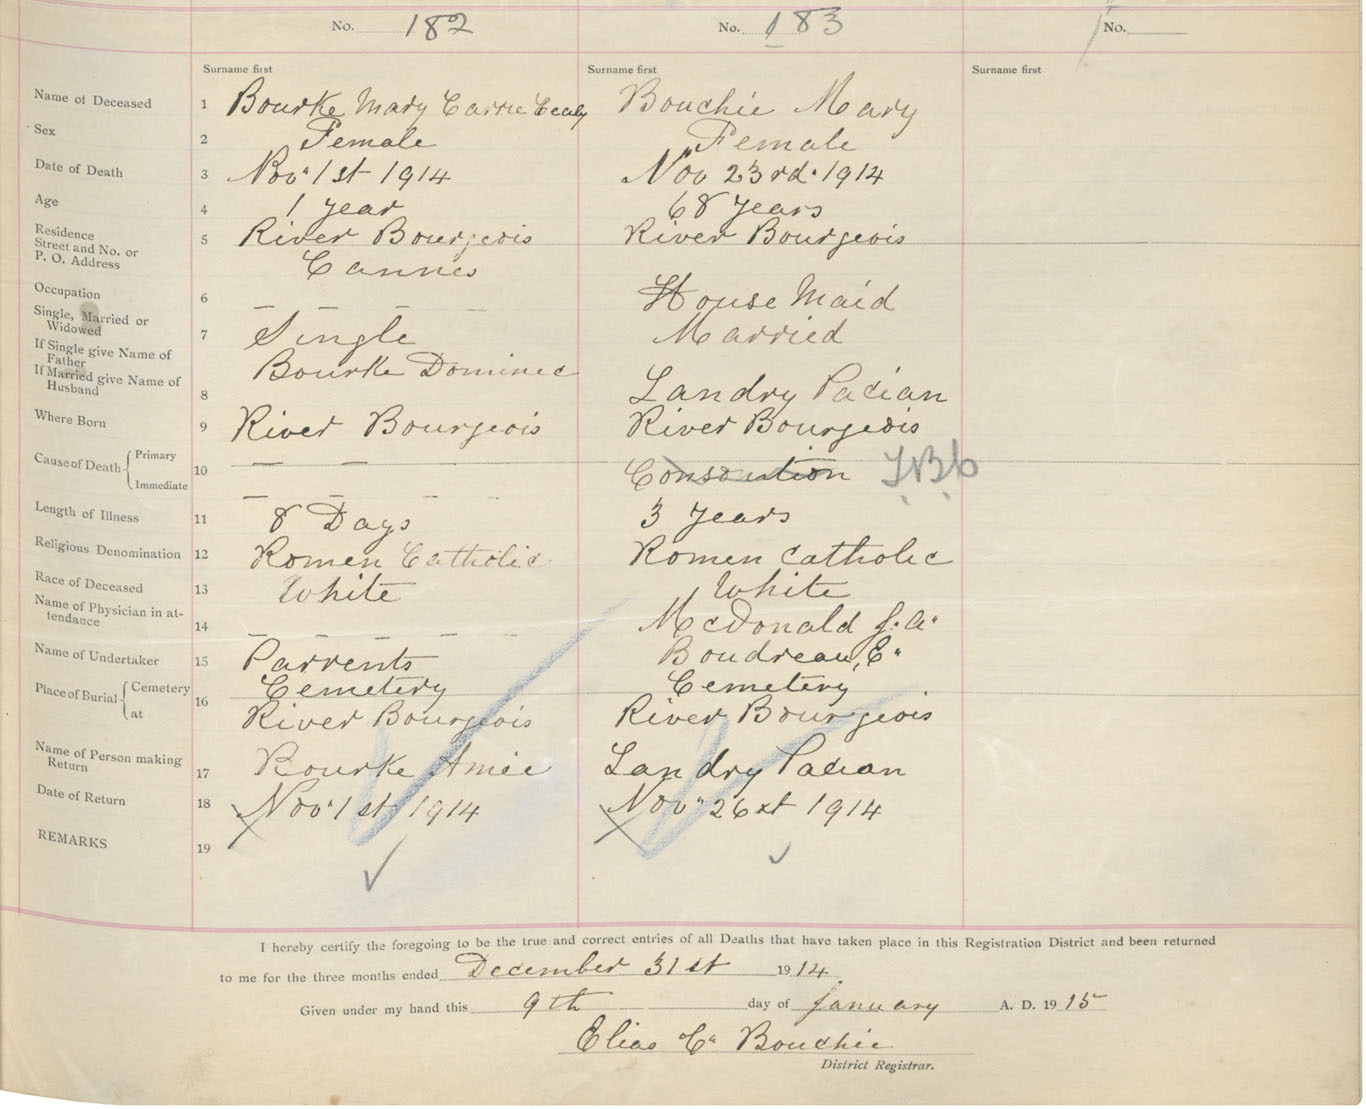 No. 182 No. 183 No.
Surname first Surname first Surname first
Name of Deceased 1 Bourke Mary Carrie Bouchie Mary
Sex 2 Female Female
Date of Death 3 Nov 1st 1914 Nov 23rd 1914
Age 4 1 year 68 years
Residence Street and No. or P. O. Address 5 River Bourgeois River Bourgeois
Cannes
Occupation 6 — — — House Maid
Single, Married or Widowed 7 Single Married
If Single give Name of Father Bourke Dominec
If Married give Name of Husband 8 Landry Pacian
Where Born 9 River Bourgeois River Bourgeois
Cause of Death Primary 10 — — Consomtion
Immediate — — —
Length of Illness 11 8 Days 3 years
Religious Denomination 12 Romen Catholic Romen Catholic
Race of Deceased 13 White White
Name of Physician in attendance 14 — — — McDonald J. A.
Name of Undertaker 15 Parrents Boudreau, E.
Place of Burial Cemetery 16 Cemetery Cemetery
at River Bourgeois River Bourgeois
Name of Person making Return 17 Bourke Amée Landry Pacian
Date of Return 18 Nov 1st 1914 Nov 26xt 1914
REMARKS 19
I hereby certify the foregoing to be the true and correct entries of all Deaths that have taken place in this Registration District and been returned
to me for the three months ended December 31st 1914
Given under my hand this 9th day of January A. D. 1915
Elias C. Bouchie
District Registrar.